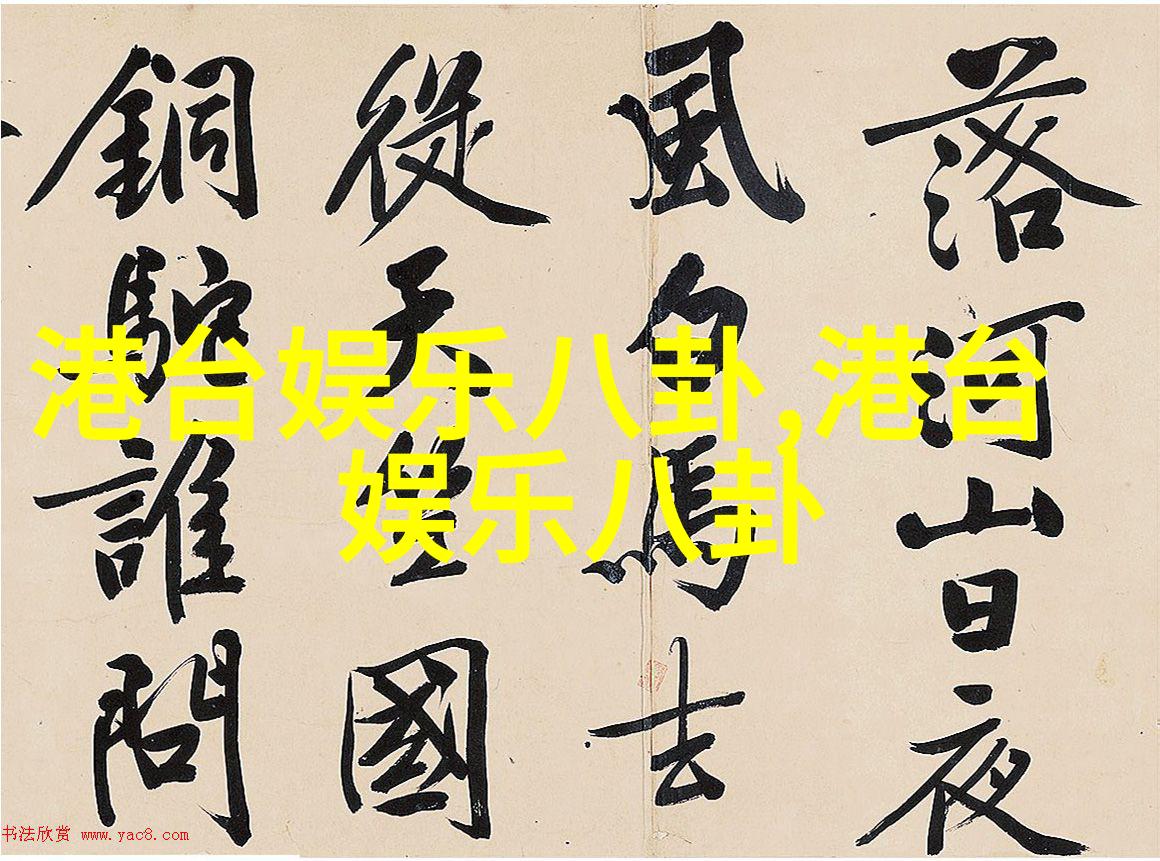 落河山日夜
風白馬去
從天竺國
銅駝誰問
港台娱乐八卦,港台
娱乐八卦
书法欣赏 www.yac8.com